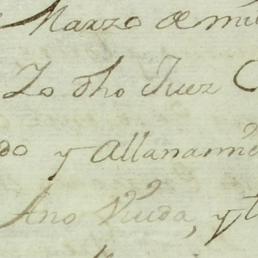 Marzo de mil
Yo dho Juez C
do y Allanamie
Ano Viuda, y